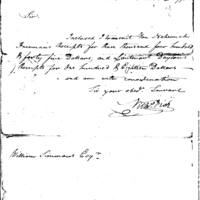 Sir
Inclosed I transmit Mr. Nehemiah
Freeman's Receipts for three thousand four hundred
& forty five Dollars, and Lieutenant Dayton's
Receipt for One hundred & Eighteen Dollars
and am with consideration
Sir your obedt Servant
William Simmons Esqr.